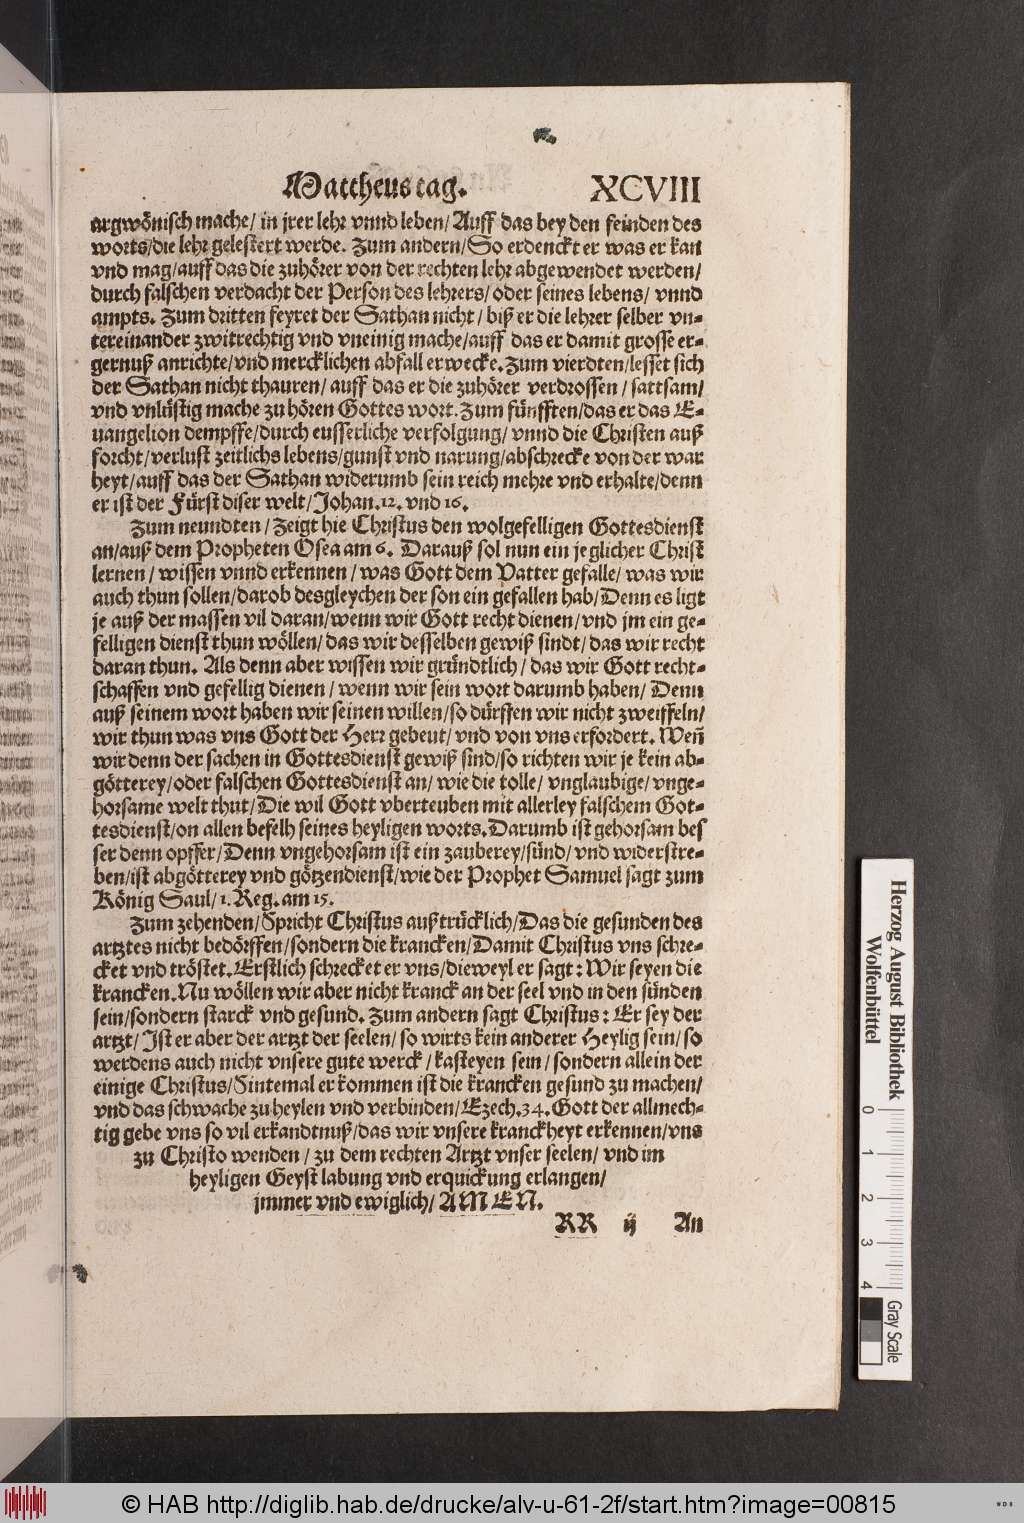 Mattheus tag. XCVIII
argwönisch mache/ in jrer lehr vnnd leben/ Auff das bey den feinden des
worts/die lehr gelestert werde. Zum andern/So erdenckt er was er kan
vnd mag/auff das die zuhörer von der rechten lehr abgewendet werden/
durch falschen verdacht der Person des lehrers/ oder seines lebens/ vnnd
ampts. Zum dritten feyret der Sathan nicht/ biß er die lehrer selber vn-
tereinander zwitrechtig vnd vneinig mache/auff das er damit grosse er-
gernuß anrichte/vnd mercklichen abfall erwecke. Zum vierdten/lesset sich
der Sathan nicht thauren/ auff das er die zuhörer verdrossen/ sattsam/
vnd vnlüstig mache zu hören Gottes wort. Zum fünfften/das er das E-
uangelion dempffe/durch eusserliche verfolgung/ vnnd die Christen auß
forcht/verlust zeitlichs lebens/gunst vnd narung/abschrecke von der war
heyt/auff das der Sathan widerumb sein reich mehre vnd erhalte/denn
er ist der Fürst diser welt/Johan.12. vnd 16.
Zum neundten/ Zeigt hie Christus den wolgefelligen Gottesdienst
an/auß dem Propheten Osea am 6. Darauß sol nun ein jeglicher Christ
lernen/ wissen vnnd erkennen/ was Gott dem Vatter gefalle/ was wir
auch thun sollen/darob desgleychen der son ein gefallen hab/Denn es ligt
je auß der massen vil daran/wenn wir Gott recht dienen/vnd jm ein ge-
felligen dienst thun wöllen/das wir desselben gewiß sindt/das wir recht
daran thun. Als denn aber wissen wir gründtlich/ das wir Gott recht-
schaffen vnd gefellig dienen/ wenn wir sein wort darumb haben/ Denn
auß seinem wort haben wir seinen willen/so dürffen wir nicht zweiffeln/
wir thun was vns Gott der Herr gebeut/vnd von vns erfordert. Weñ
wir denn der sachen in Gottesdienst gewiß sind/so richten wir je kein ab-
götterey/oder falschen Gottesdienst an/ wie die tolle/ vnglaubige/ vnge-
horsame welt thut/Die wil Gott vberteuben mit allerley falschem Got-
tesdienst/on allen befelh seines heyligen worts. Darumb ist gehorsam bes
ser denn opffer/Denn vngehorsam ist ein zauberey/sünd/ vnd widerstre-
ben/ist abgötterey vnd götzendienst/wie der Prophet Samuel sagt zum
König Saul/ 1. Reg. am 15.
Zum zehenden/Spricht Christus außtrücklich/Das die gesunden des
artztes nicht bedörffen/sondern die krancken/Damit Christus vns schre-
cket vnd tröstet. Erstlich schrecket er vns/dieweyl er sagt: Wir seyen die
krancken. Nu wöllen wir aber nicht kranck an der seel vnd in den sünden
sein/sondern starck vnd gesund. Zum andern sagt Christus: Er sey der
artzt/ Ist er aber der artzt der seelen/ so wirts kein anderer Heylig sein/so
werdens auch nicht vnsere gute werck/ kasteyen sein/ sondern allein der
einige Christus/Sintemal er kommen ist die krancken gesund zu machen/
vnd das schwache zu heylen vnd verbinden/Ezech.34. Gott der allmech-
tig gebe vns so vil erkandtnuß/das wir vnsere kranckheyt erkennen/vns
zu Christo wenden/ zu dem rechten Artzt vnser seelen/ vnd im
heyligen Geyst labung vnd erquickung erlangen/
jmmer vnd ewiglich/ AMEN.
RR ij An
Herzog August Bibliothek
Wolfenbüttel
0 1 2 3 4
Gray Scale
© HAB http://diglib.hab.de/drucke/alv-u-61-2f/start.htm?image=00815